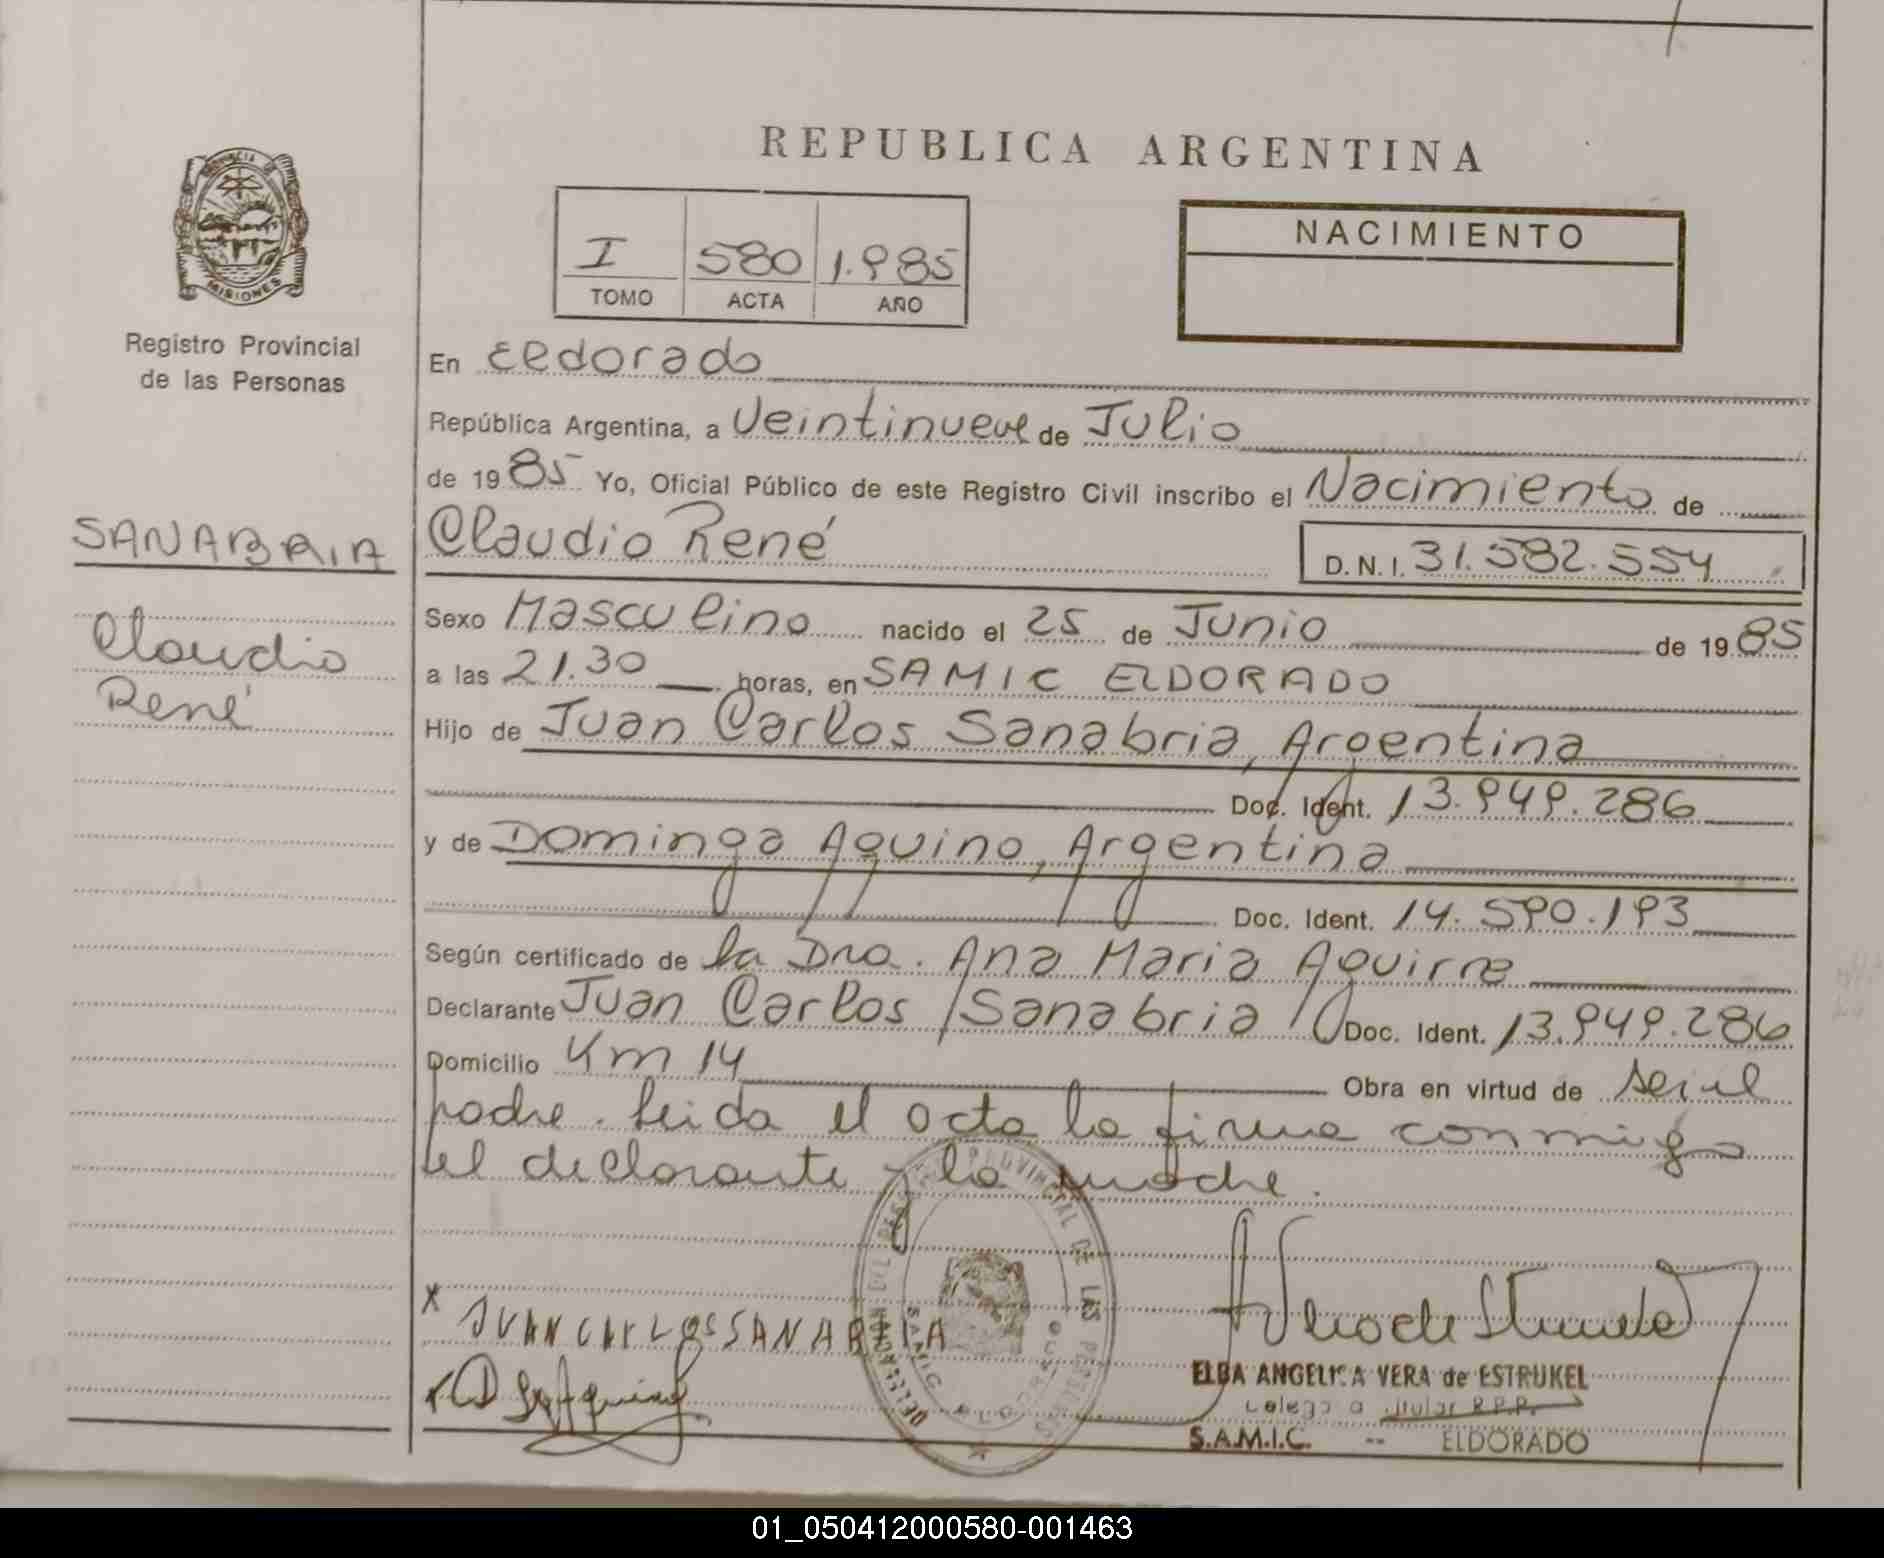 REPUBLICA ARGENTINA
PROVINCIA DE
MISIONES
Registro Provincial
de las Personas
I 580 1.985
TOMO ACTA AÑO
NACIMIENTO
En Eldorado
República Argentina, a Veintinueve de Julio
de 1985 Yo, Oficial Público de este Registro Civil inscribo el Nacimiento de
SANABRIA
Claudio René
D.N.I. 31.582.554
Claudio
René
Sexo Masculino nacido el 25 de Junio de 1985
a las 21.30 horas, en SAMIC ELDORADO
Hijo de Juan Carlos Sanabria, Argentina
Doc. Ident. 13.949.286
y de Dominga Aquino, Argentina
Doc. Ident. 14.590.193
Según certificado de la Dra. Ana Maria Aguirre
Declarante Juan Carlos Sanabria Doc. Ident. 13.949.286
Domicilio Km 14 Obra en virtud de ser el
padre. Leida el acta la firma conmigo
el declarante y la madre.
x JUAN CARLOS SANABRIA
PROVINCIAL DE LAS PERSONAS
ELBA ANGELICA VERA de ESTRUKEL
S.A.M.I.C. -- ELDORADO
01_050412000580-001463